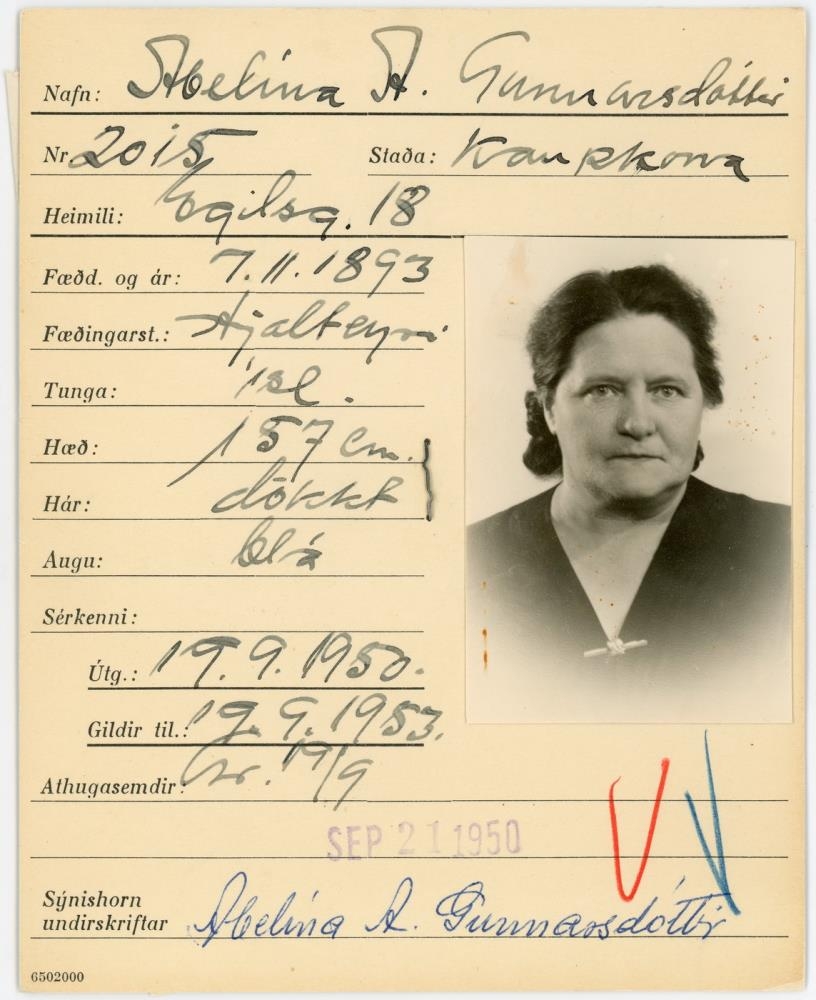 Nafn: Abelína A. Gunnarsdóttir
Nr. 2015 Staða: Kaupkona
Heimili: Egilsg. 18
Fædd. og ár: 7.11.1893
Fæðingarst.: Hjalteyri
Tunga: ísl.
Hæð: 157 cm.
Hár: dökkt
Augu: blá
Sérkenni:
Útg.: 19.9.1950.
Gildir til.: 19.9.1953.
Athugasemdir: 19/9
SEP 21 1950
Sýnishorn
undirskriftar Abelína A. Gunnarsdóttir
6502000